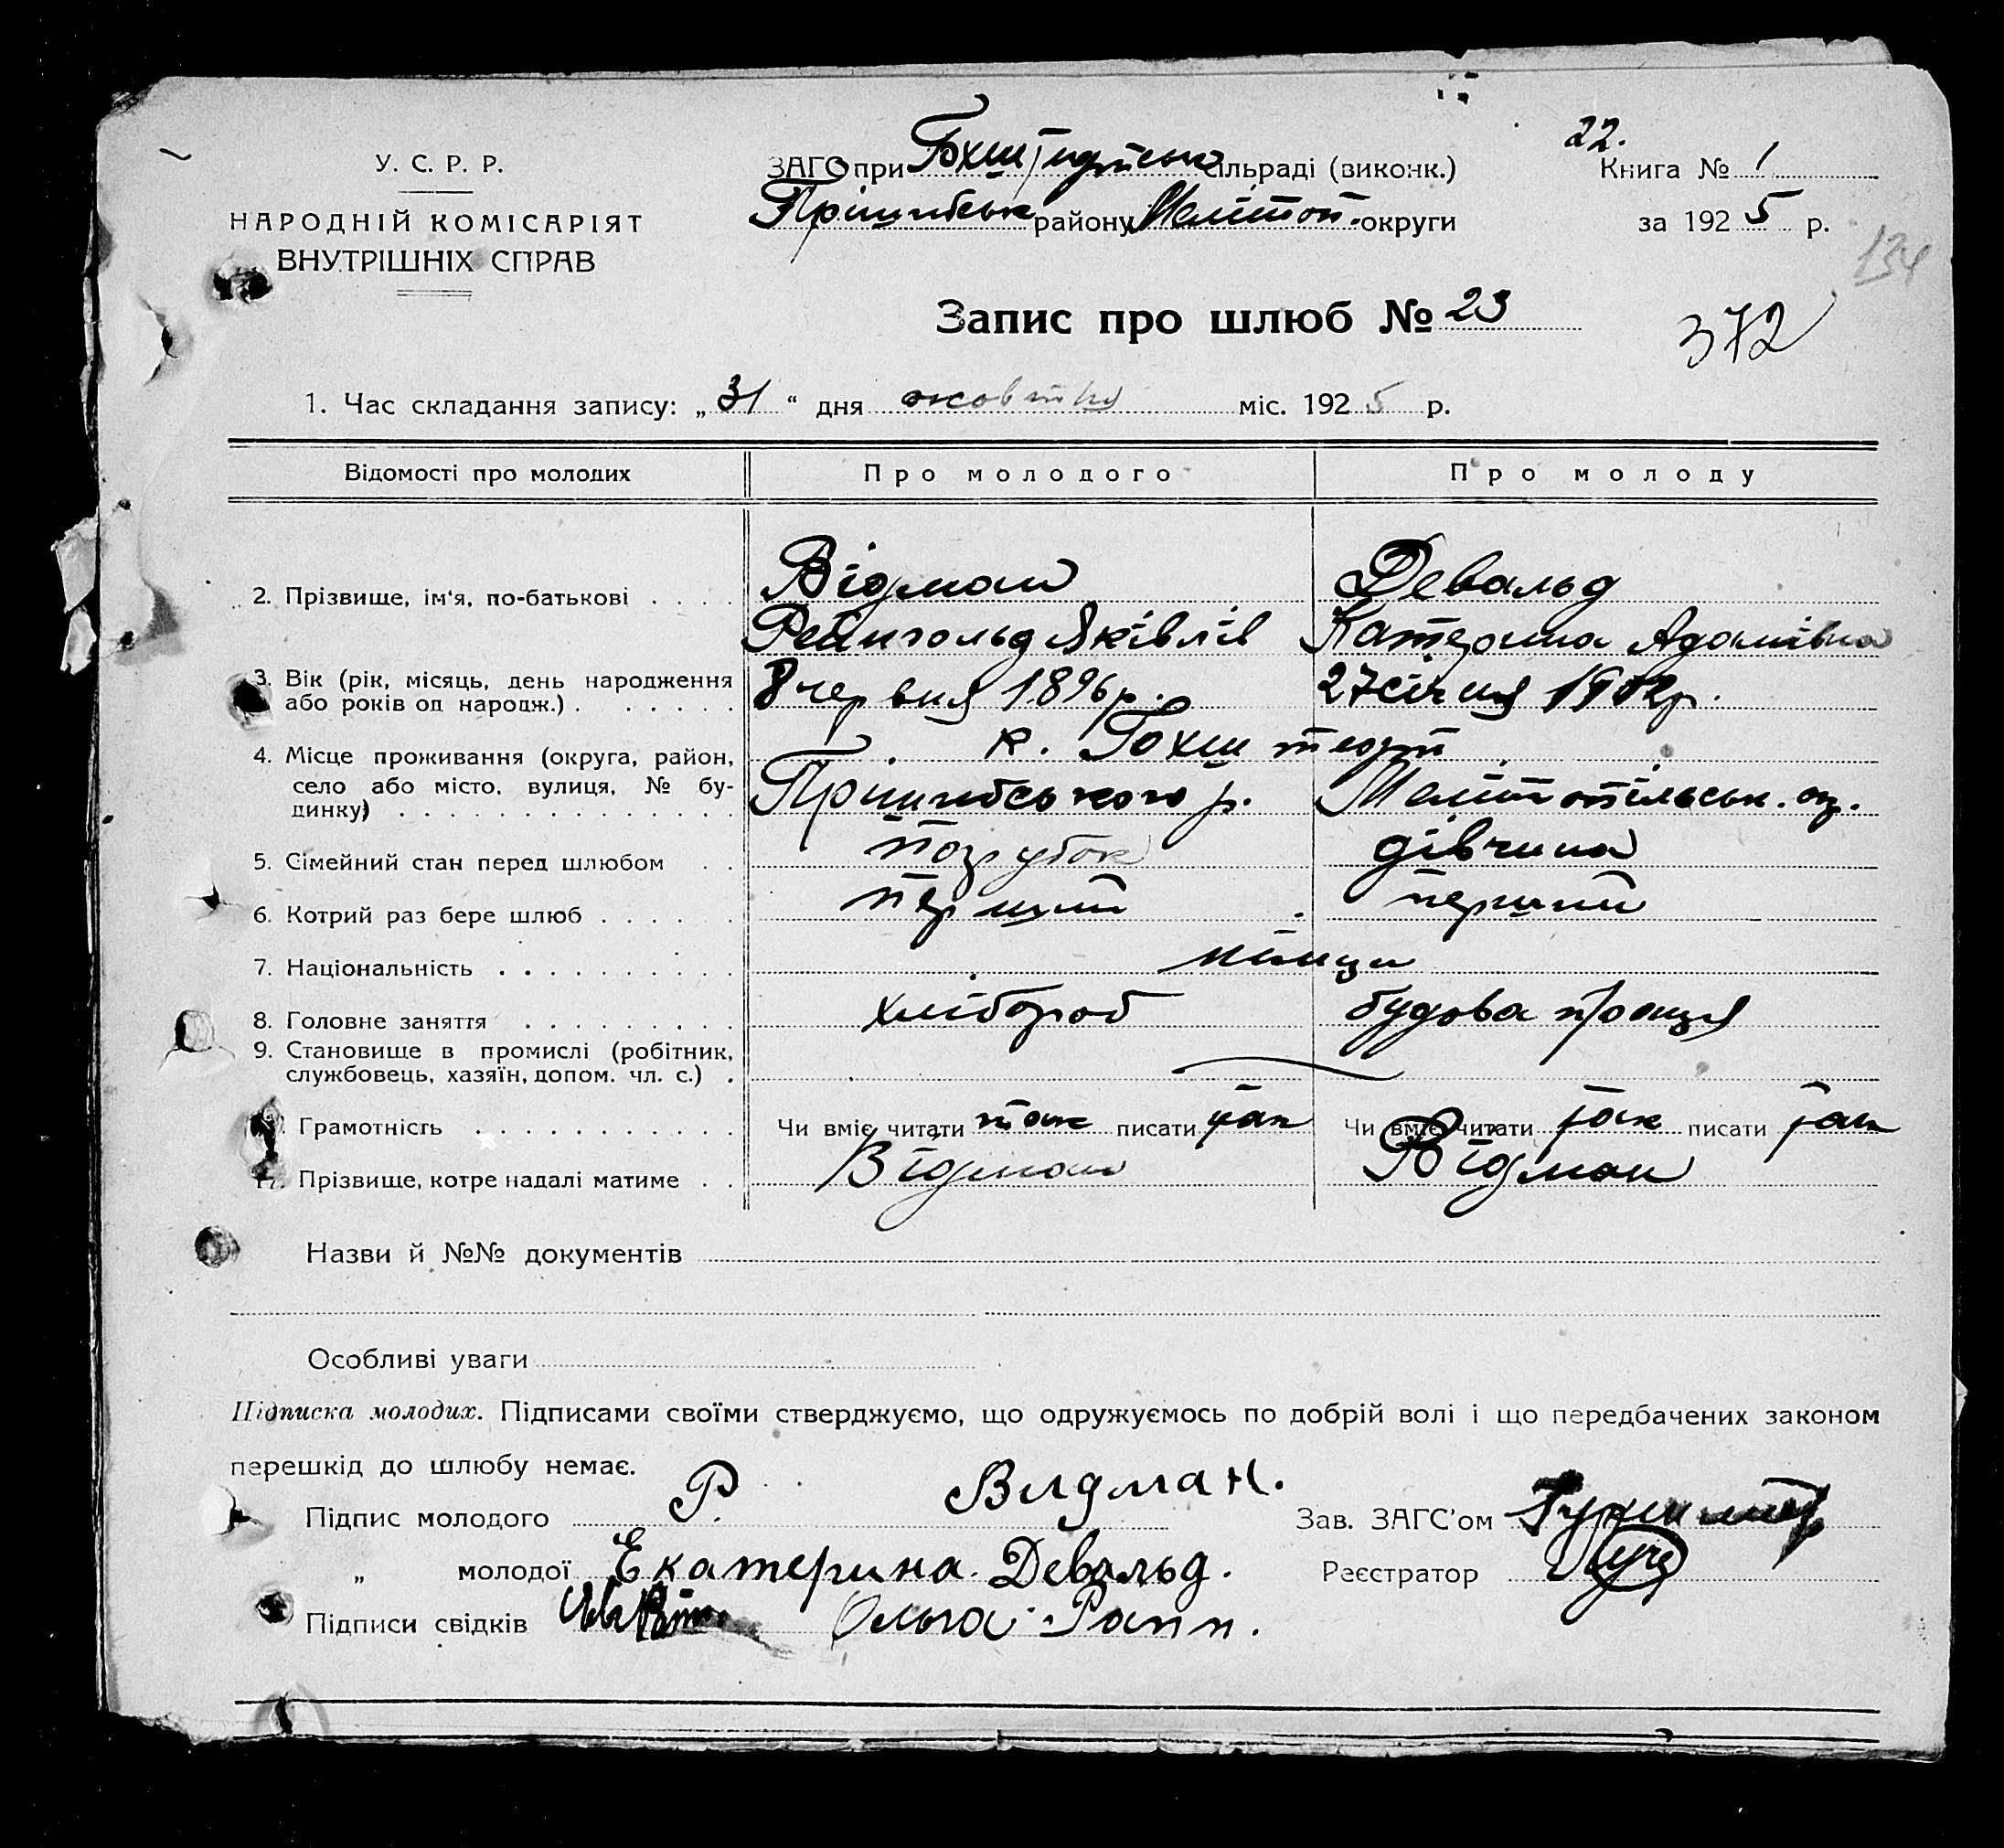 22.
У. С. Р. Р. ЗАГС при Гохштедтськ сільраді (виконк.) Книга № 1
НАРОДНІЙ КОМІСАРІЯТ Прішибськ району Мелітоп. округи за 1925 р.
ВНУТРІШНІХ СПРАВ
134
Запис про шлюб № 23
372
1. Час складання запису: „31“ дня жовтня міс. 1925 р.
Відомості про молодих Про молодого Про молоду
2. Прізвище, ім'я, по-батькові Відман Девальд
Рейнгольд Яківлів Катерина Адамівна
3. Вік (рік, місяць, день народження 8 червня 1896 р. 27 січня 1902 р.
або років од народж.)
к. Гохштедт
4. Місце проживання (округа, район,
село або місто, вулиця, № бу- Прішибського р. Мелітопільськ. ок.
динку)
5. Сімейний стан перед шлюбом парубок дівчина
6. Котрий раз бере шлюб перший перший
7. Національність німци
8. Головне заняття хлібороб будова праця
9. Становище в промислі (робітник,
службовець, хазяїн, допом. чл. с.)
Грамотність Чи вміє читати так писати так Чи вміє читати так писати так
11. Прізвище, котре надалі матиме Відман Відман
Назви й №№ документів
Особливі уваги
Підписка молодих. Підписами своїми стверджуємо, що одружуємось по добрій волі і що передбачених законом
перешкід до шлюбу немає.
Підпис молодого Р. Видман. Зав. ЗАГС'ом
„ молодої Екатерина Девальд. Реєстратор
Підписи свідків Ольга Рапп.